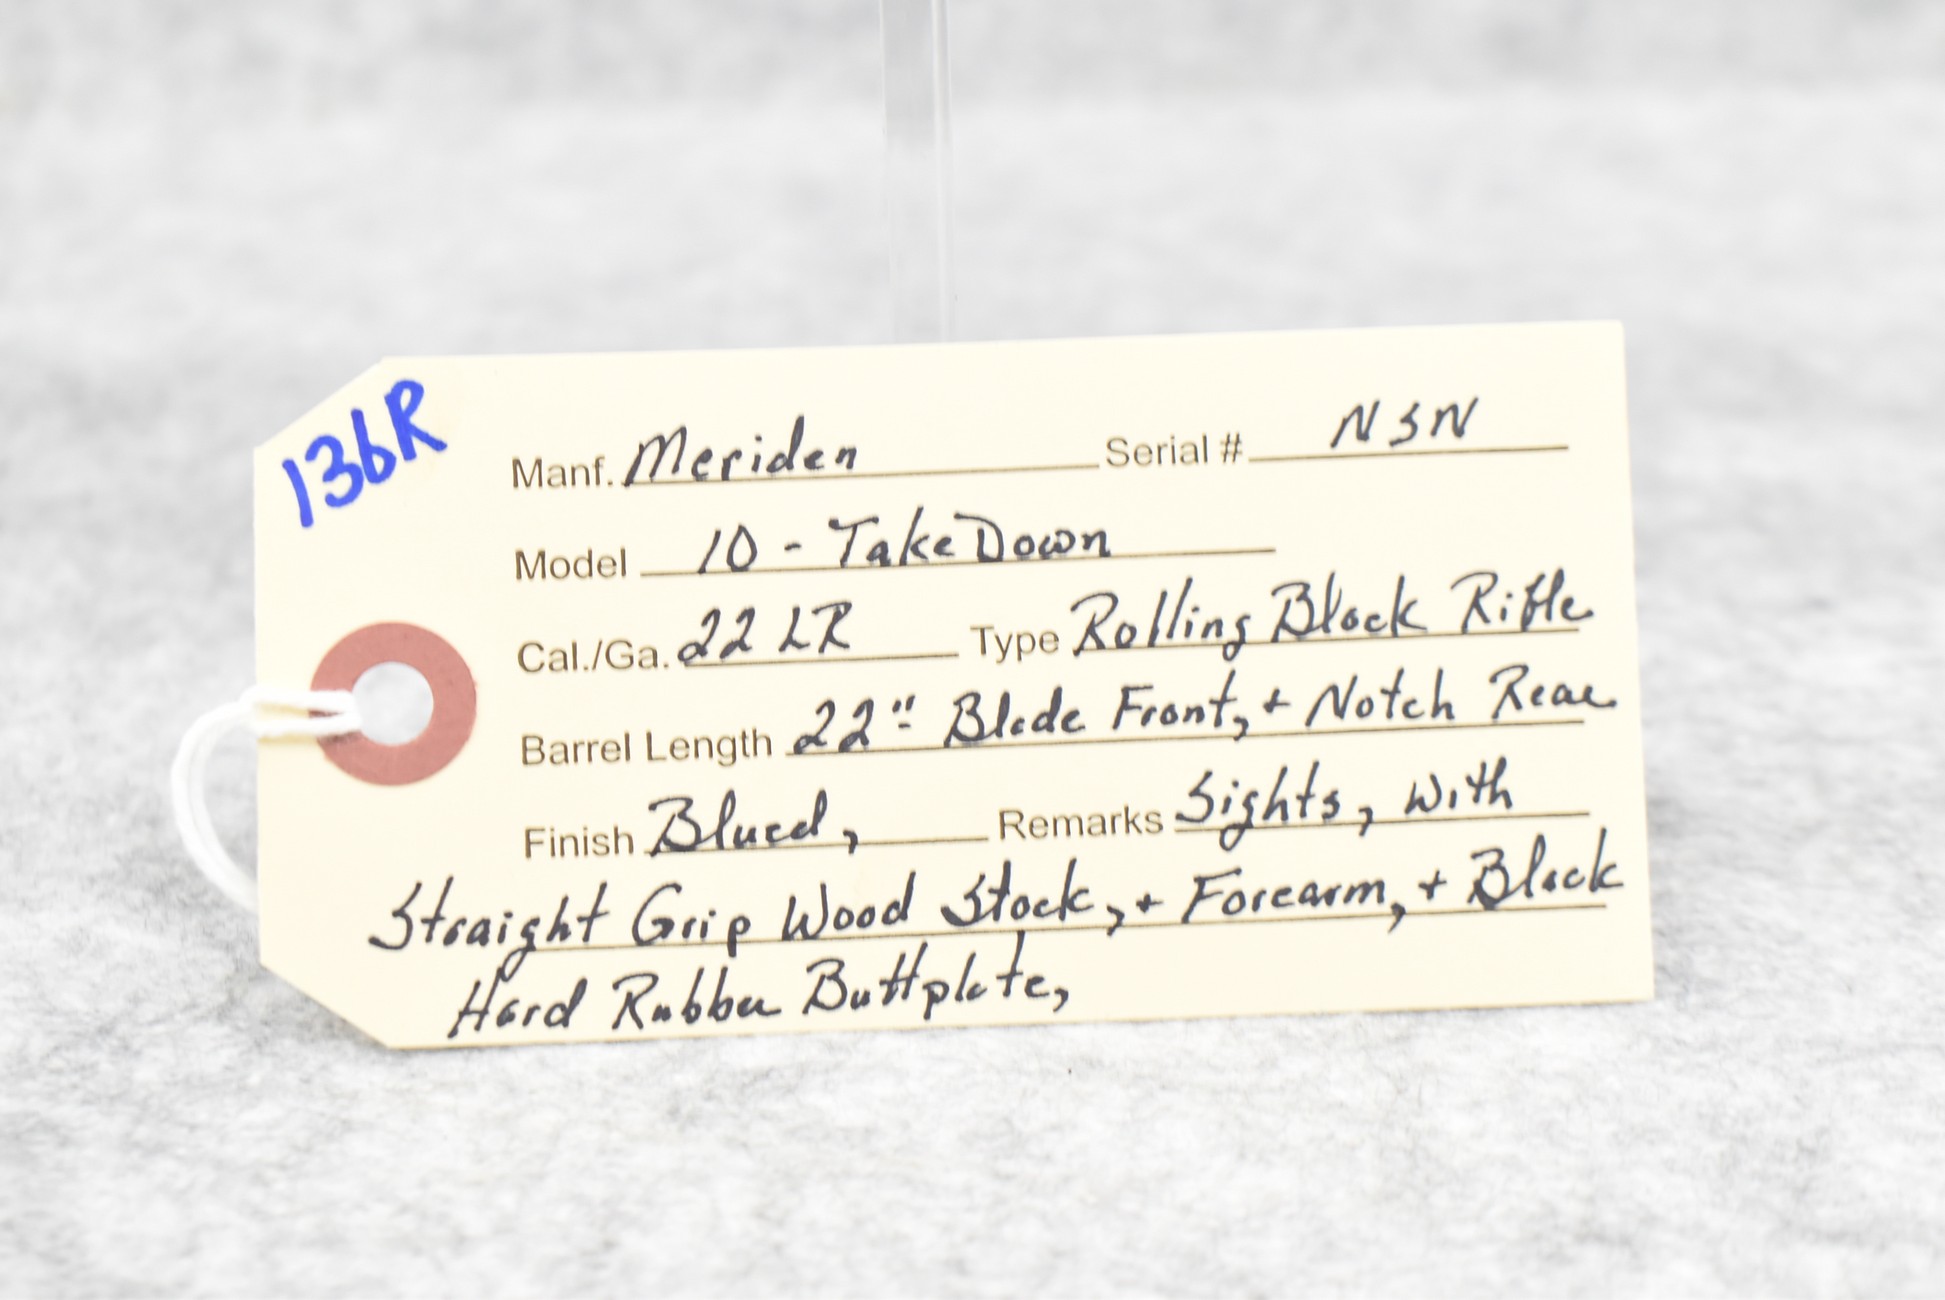 136R
Manf. Meriden Serial # NSN
Model 10 - TakeDown
Cal./Ga. 22 LR Type Rolling Block Rifle
Barrel Length 22" Blade Front, + Notch Rear
Finish Blued, Remarks Sights, with
Straight Grip Wood Stock, + Forearm, + Black
Hard Rubber Buttplate,